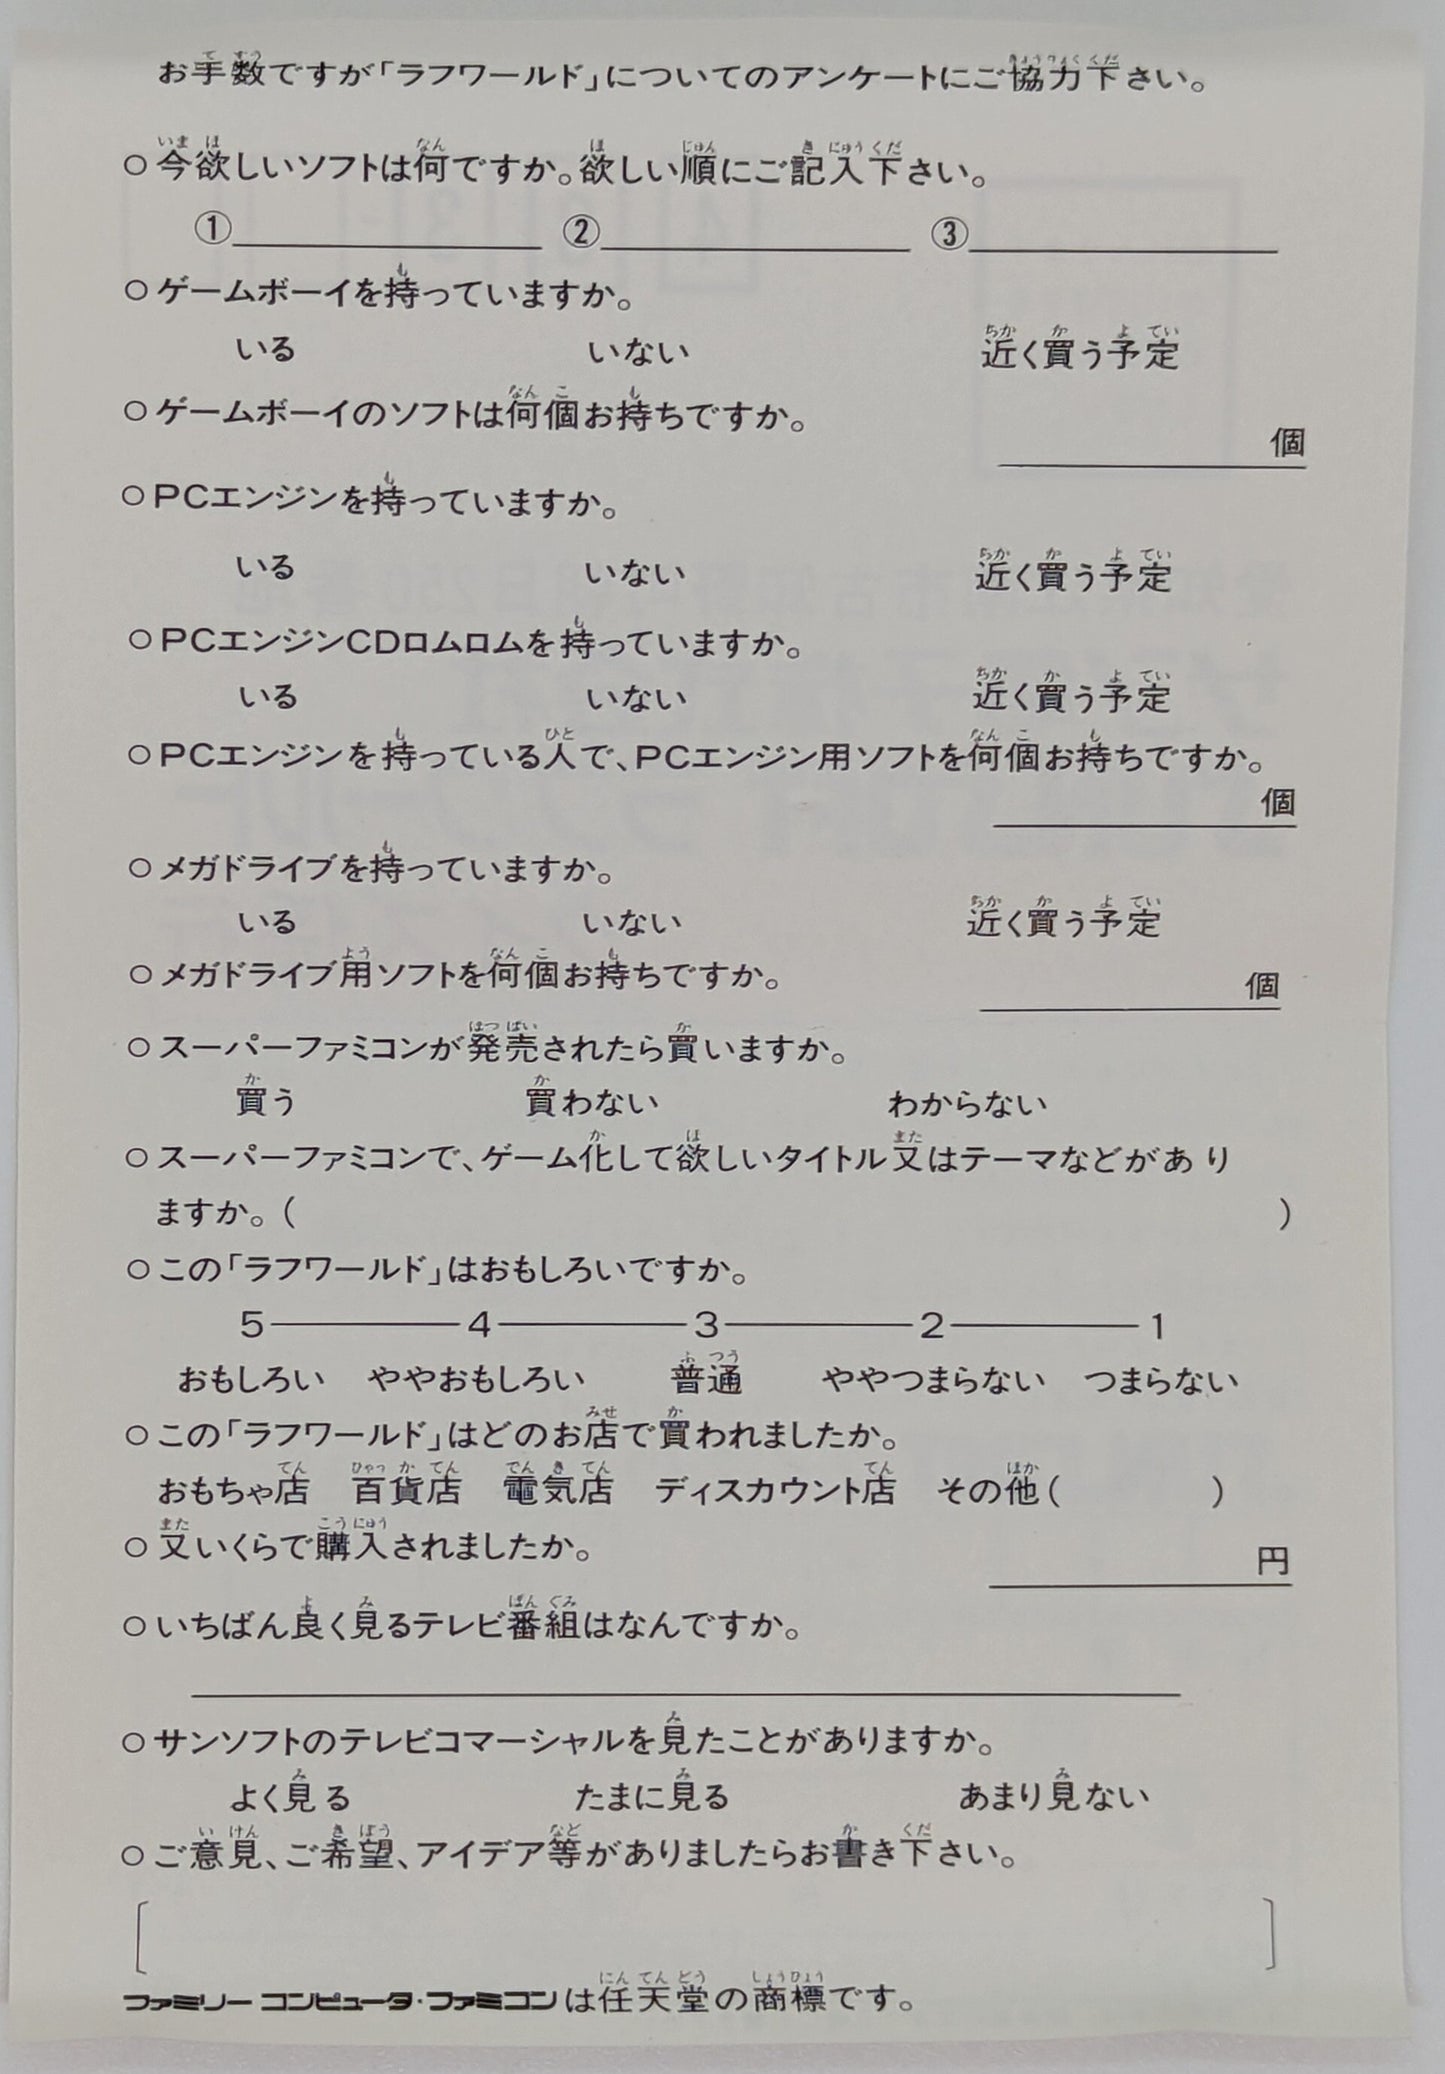 お手数ですが「ラフワールド」についてのアンケートにご協力下さい。
○今欲しいソフトは何ですか。欲しい順にご記入下さい。
① ② ③
○ゲームボーイを持っていますか。
いる いない 近く買う予定
○ゲームボーイのソフトは何個お持ちですか。
個
○PCエンジンを持っていますか。
いる いない 近く買う予定
○PCエンジンCDロムロムを持っていますか。
いる いない 近く買う予定
○PCエンジンを持っている人で、PCエンジン用ソフトを何個お持ちですか。
個
○メガドライブを持っていますか。
いる いない 近く買う予定
○メガドライブ用ソフトを何個お持ちですか。
個
○スーパーファミコンが発売されたら買いますか。
買う 買わない わからない
○スーパーファミコンで、ゲーム化して欲しいタイトル又はテーマなどがあり
ますか。( )
○この「ラフワールド」はおもしろいですか。
5 4 3 2 1
おもしろい ややおもしろい 普通 ややつまらない つまらない
○この「ラフワールド」はどのお店で買われましたか。
おもちゃ店 百貨店 電気店 ディスカウント店 その他( )
○又いくらで購入されましたか。
円
○いちばん良く見るテレビ番組はなんですか。
○サンソフトのテレビコマーシャルを見たことがありますか。
よく見る たまに見る あまり見ない
○ご意見、ご希望、アイデア等がありましたらお書き下さい。
[ ]
ファミリーコンピュータ・ファミコンは任天堂の商標です。